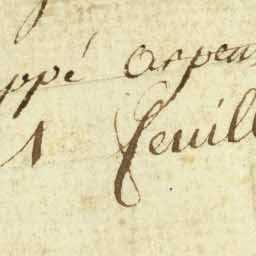 ppé arpen
1 feuill